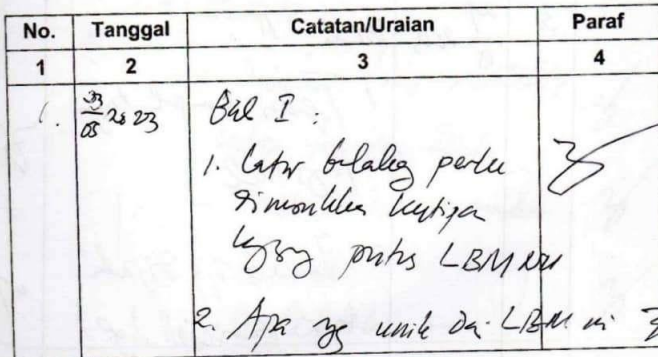 No. Tanggal Catatan/Uraian Paraf
1 2 3 4
1. 2023 Bab I :
1. Latar belakang perlu
dimasukkan kutipan
putus LBM NU
2. Apa yg unik dr LBM ini